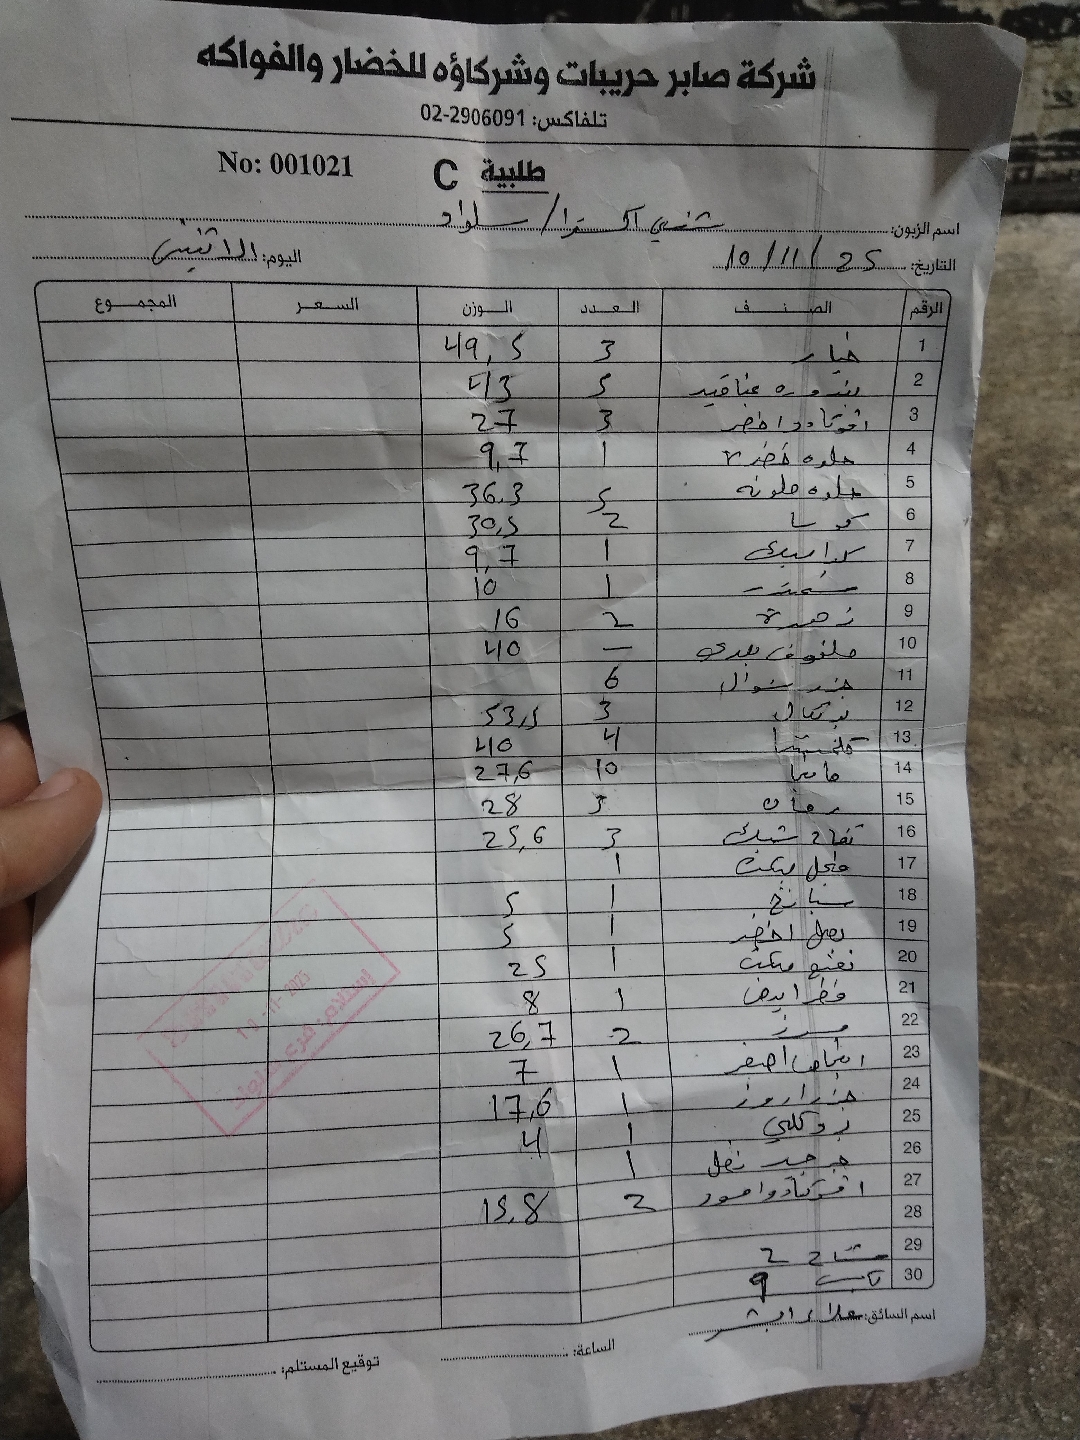 شركة صابر حريبات وشركاؤه للخضار والفواكه
تلفاكس: 02-2906091
No: 001021 C طلبية
اسم الزبون: شني اكسترا / سلواد
التاريخ: 10/11/25 اليوم: الاثنين
الرقم الصنف العدد الوزن السعر المجموع
1 خيار 3 49,5
2 بندوره عناقيد 5 43
3 افوكادو اخضر 3 27
4 حلوه خضره 1 9,7
5 حلوه ملونه 5 36.3
6 كوسا 2 30,5
7 1 9,7
8 شمندر 1 10
9 زهرة 2 16
10 ملفوف بلدي — 40
11 جزر شوال 6
12 برتقال 3 53,5
13 كلمنتينا 4 40
14 مانجا 10 27,6
15 رمان 3 28
16 تفاح 3 25,6
17 فجل مكت 1
18 سبانخ 1 5
19 بصل اخضر 1 5
20 نعنع مكت 1 25
21 فطر ابيض 1 8
22 موز 2 26,7
23 اجاص اصفر 1 7
24 جزر اروز 1 17,6
25 بروكلي 1 4
26 جرجير نعل 1
27 افوكادو اسود 2 15,8
28
29 مشتاح 2
30 9
اسم السائق: علاء
الساعة:
توقيع المستلم:
10-11-2025